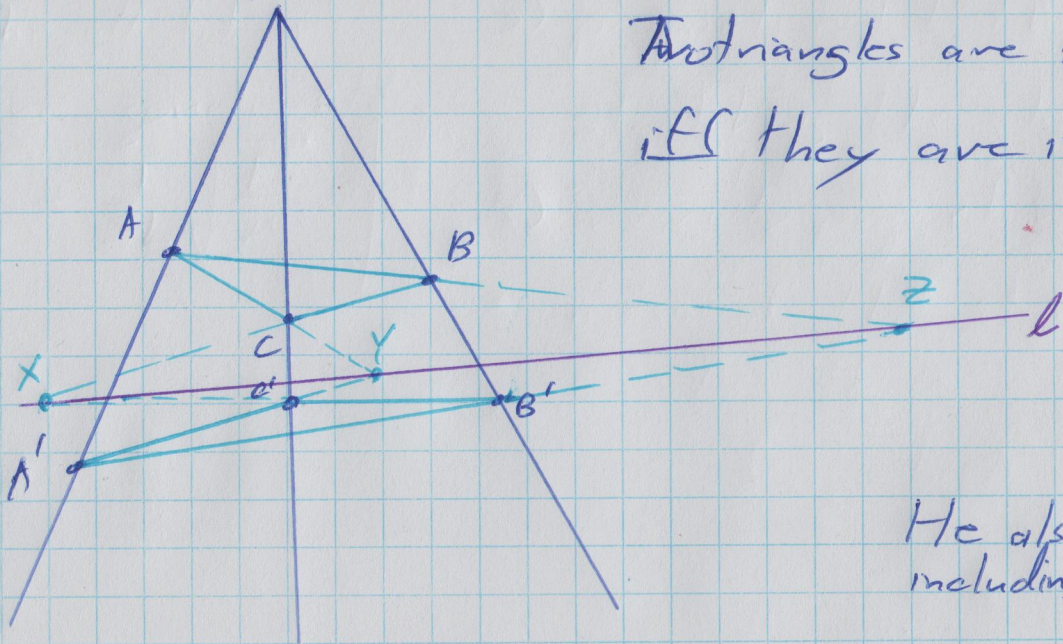 Two triangles are
iff they are i
A
B
Z
l
C
Y
X
C'
B'
A'
He als
includin